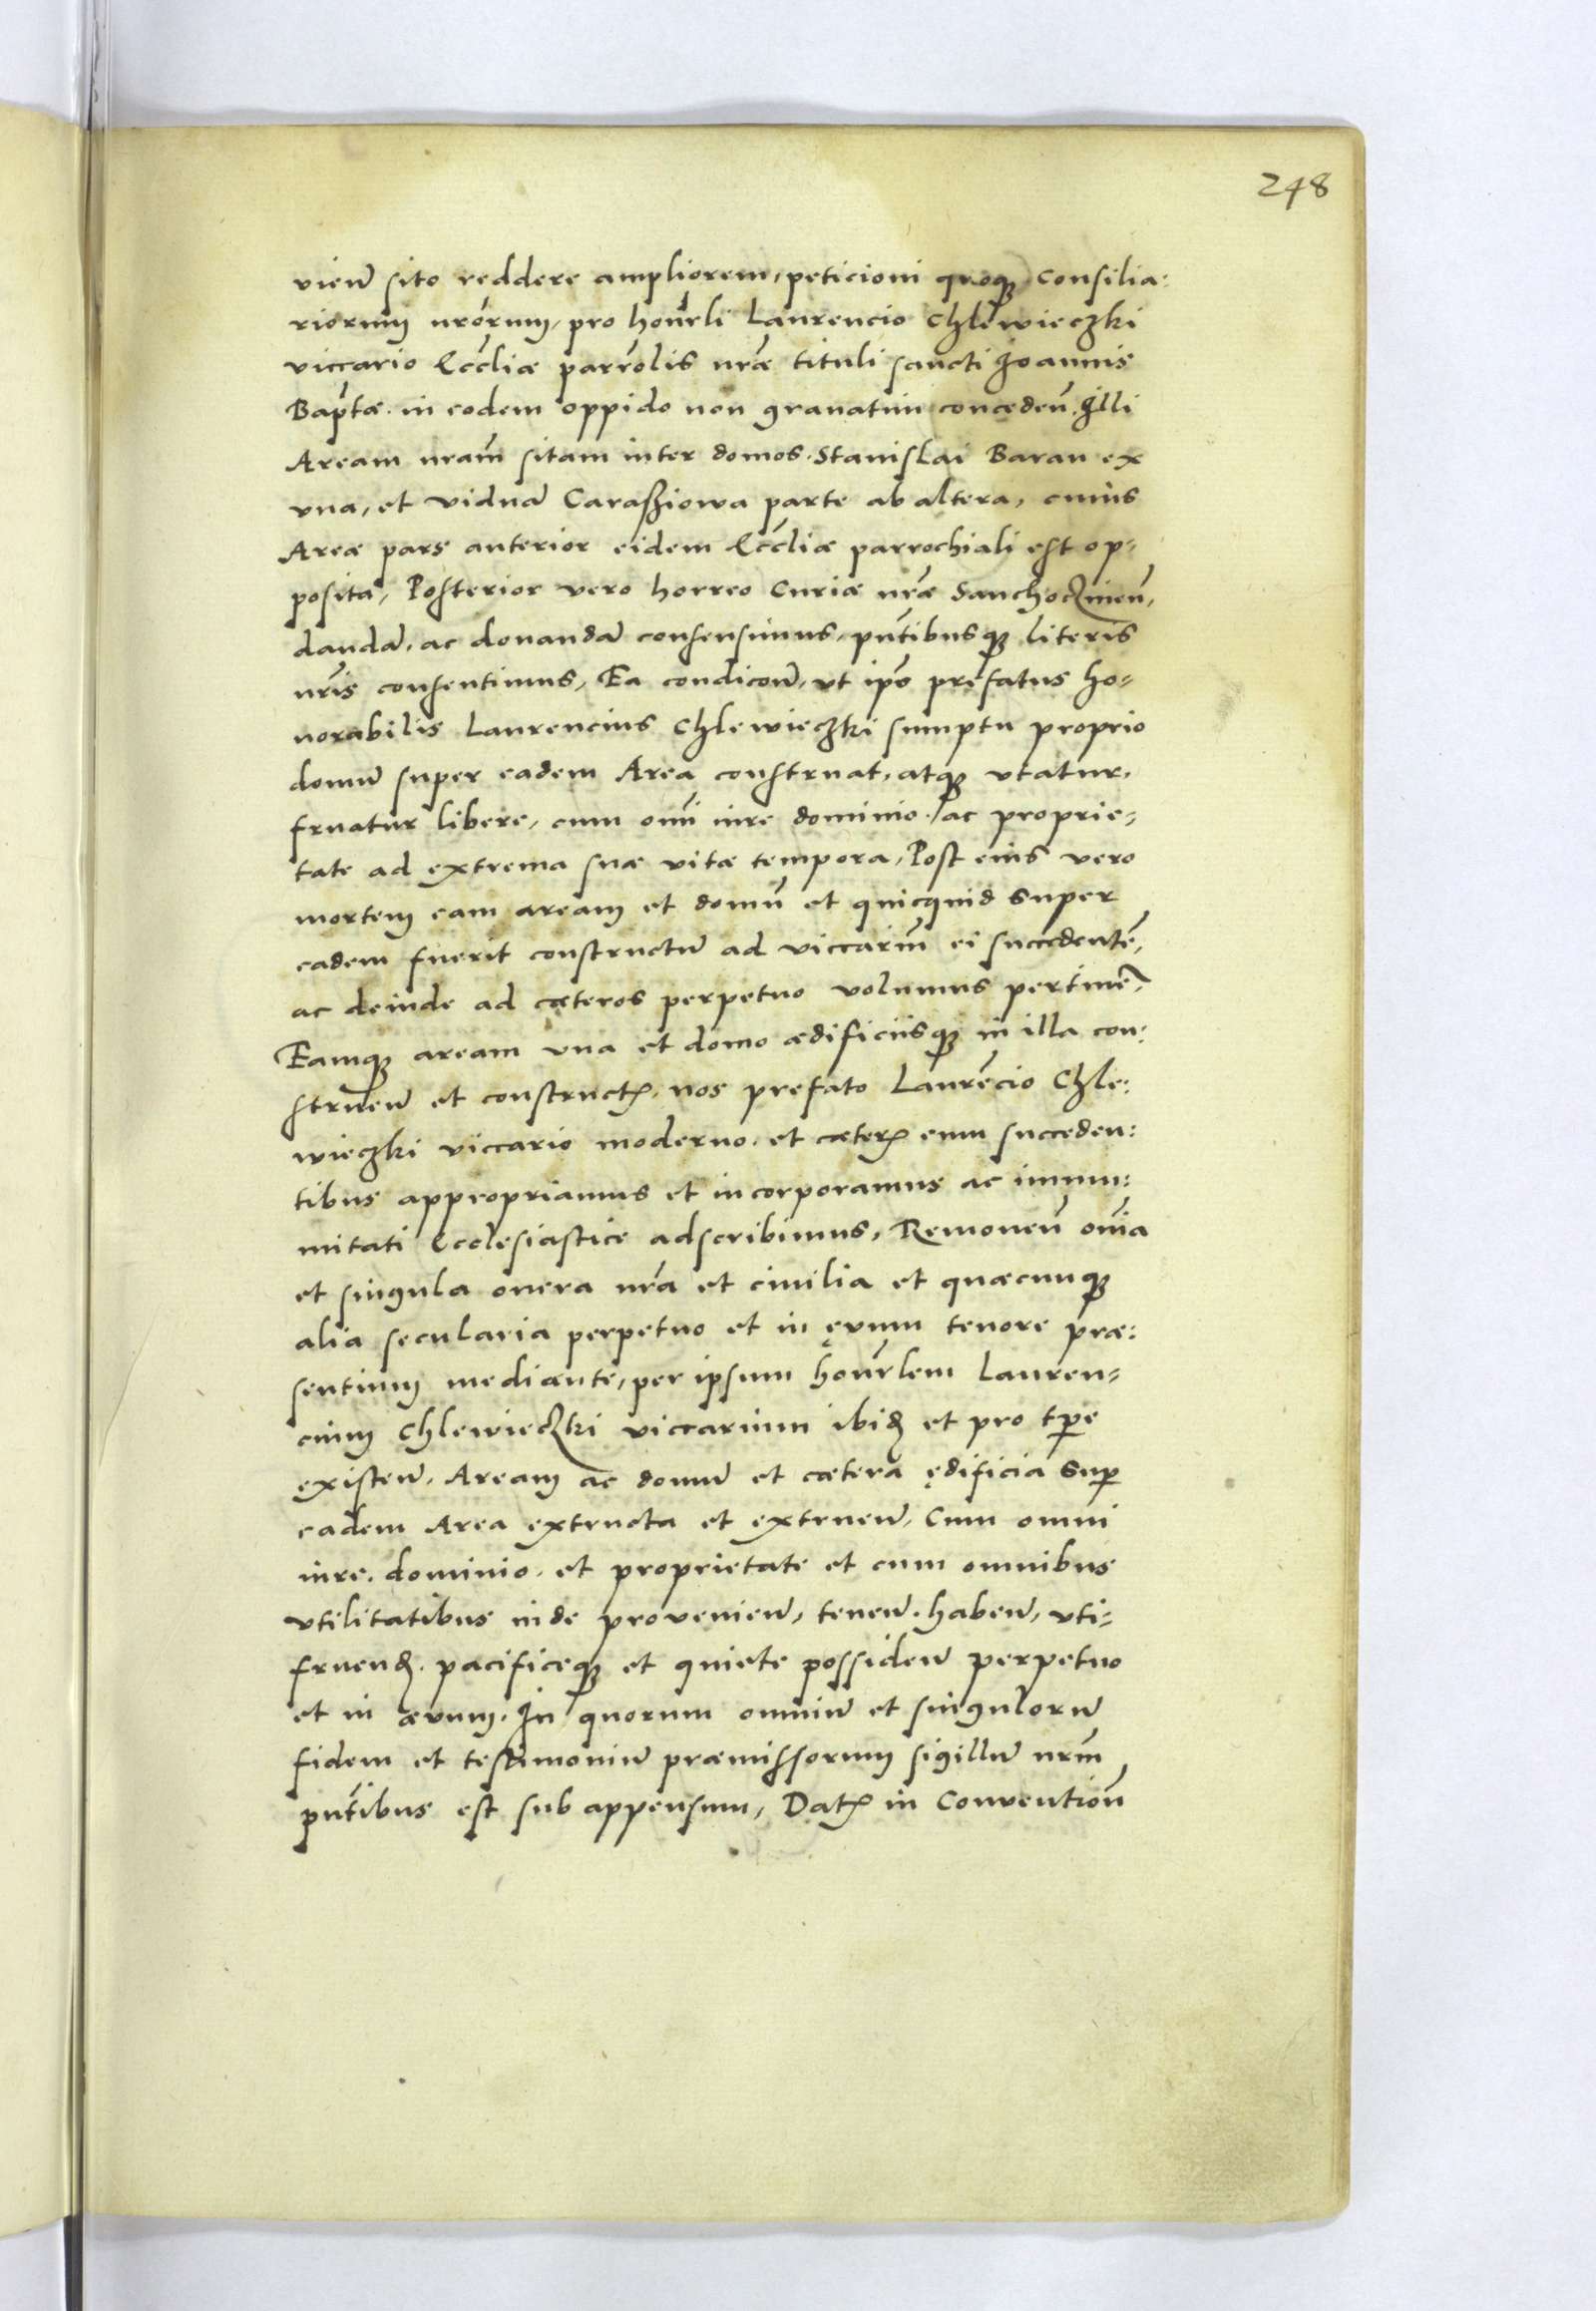 248
vien̄ sito reddere ampliorem, peticioni quoqȝ Consilia:
riorum nr̄orum, pro honr̄li Laurencio Chlewieczki
viccario Eccl̄iæ parro̅lis nr̄æ tituli sancti Joannis
Bapt̄æ. in eodem oppido non gravatim conceden̄. Illi
Aream nr̄am sitam inter domos. Stanislai Baran ex
vna, et viduā Caraßiowa parte ab altera, cuius
Areæ pars anterior eidem Eccl̄iæ parrochiali est op-
posita, Posterior vero horreo Curiæ nr̄æ Sanchoczinien̄,
dandā, ac donandā consensimus, pn̄tibusqȝ literis
nr̄is consentimus, Ea condicōn̄, vt ip̄e prefatus ho-
norabilis Laurencius Chlewieczki sumptu proprio
domū super eadem Area construat, atqȝ vtatur,
fruatur libere, cum om̄i iure dominio, ac proprie-
tate ad extrema suæ vitæ tempora, Post eius vero
mortem eam aream et domū et quicquid super
eadem fuerit constructū ad viccariū ei succedentē,
ac deinde ad cæteros perpetuo volumus pertinē,
Eamqȝ aream vna et domo ædificiisqȝ in illa con:
struen̄ et constructꝭ, nos prefato Laurēcio Chle:
wieczki viccario moderno, et cæterꝭ eum succeden:
tibus appropriamus et incorporamus ac immu:
nitati Ecclesiasticę adscribimus, Removen̄ om̄ia
et singula onera nr̄a et civilia et quæcunqȝ
alia secularia perpetuo et in ęvum tenore præ:
sentium mediante, per ipsum honr̄lem Lauren-
cium Chlewieczki viccarium ibidꝫ et pro tp̄e
existen̄, Aream ac domū et cætera ędificia sup̄
eadem Area extructa et extruen̄, Cum omni
iure, dominio, et proprietate et cum omnibus
vtilitatibus inde provenien̄, tenen̄, haben̄, vti-
fruendꝫ, pacificeqȝ et quiete possiden̄ perpetuo
et in ævum. In quorum omniū et singulorū
fidem et testimoniū præmissorum sigillū nr̄m
pn̄tibus est sub appensum, Datꝭ in Conventioн̄